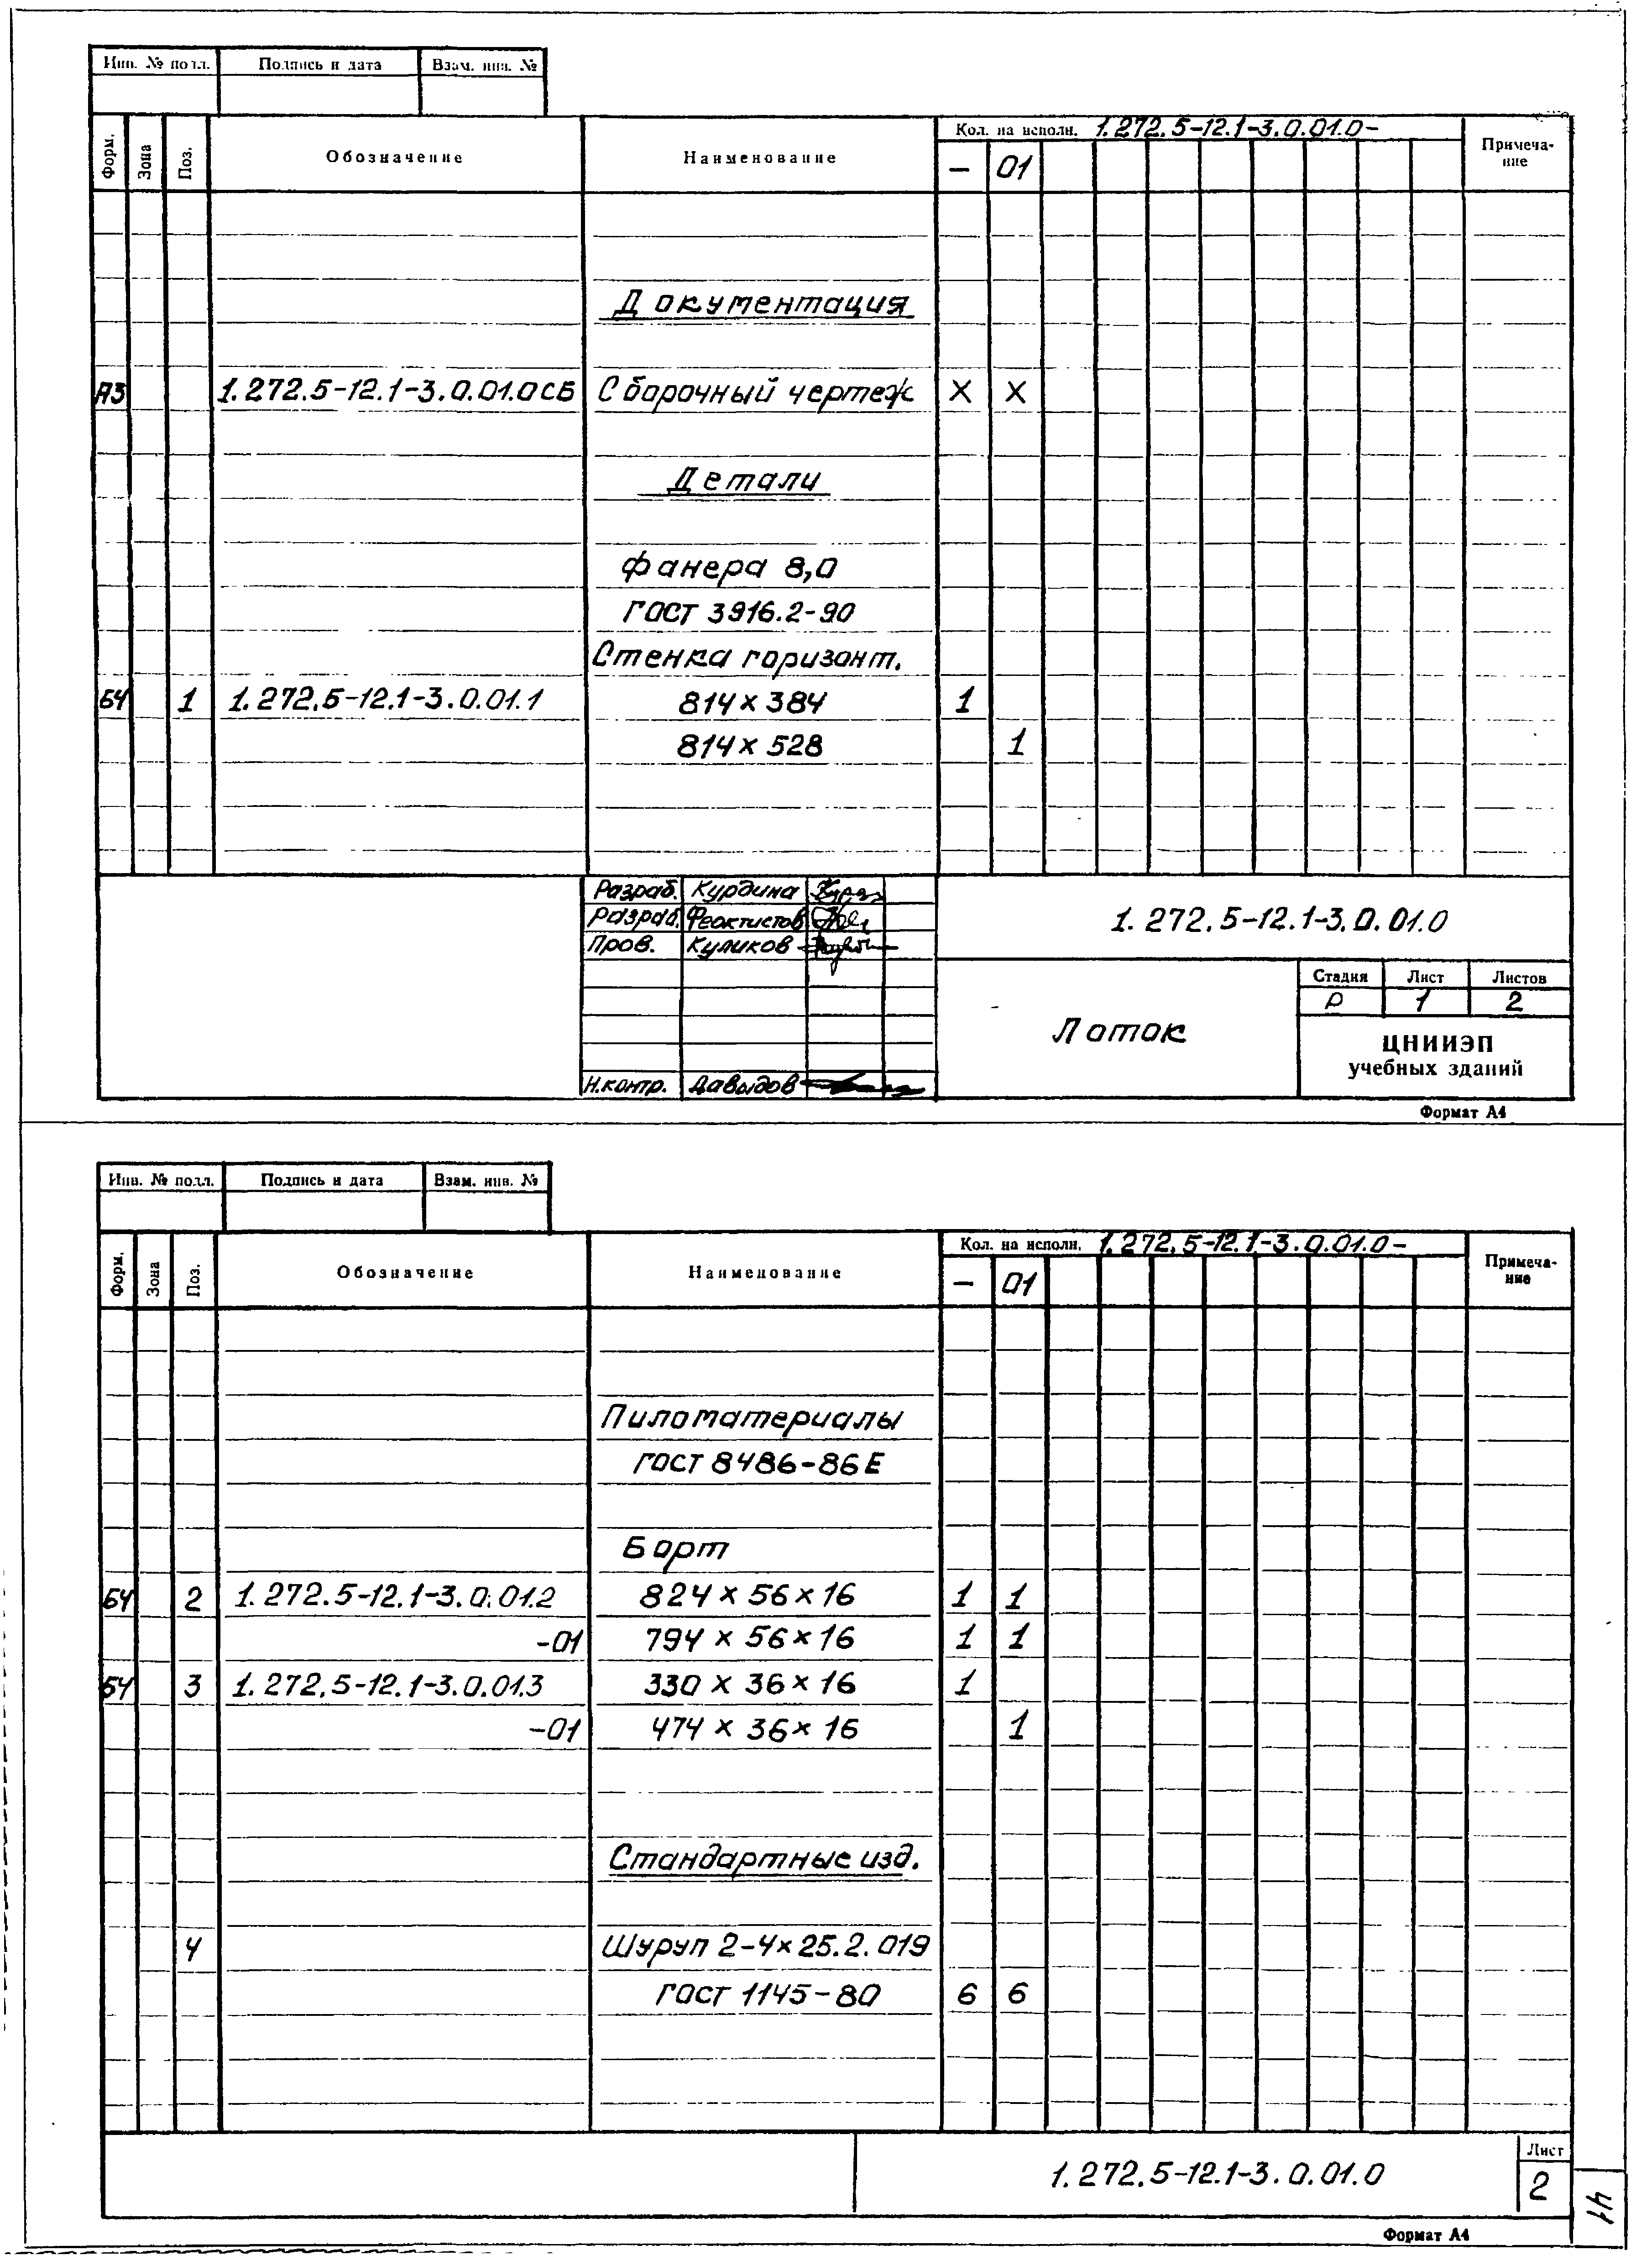 Инв. № подл. Подпись и дата Взам. инв. №
Форм. Зона Поз. Обозначение Наименование Кол. на исполн. 1.272.5-12.1-3.0.01.0- Примеча-
ние
- 01
Документация
А3 1.272.5-12.1-3.0.01.0СБ Сборочный чертеж X X
Детали
Фанера 8,0
ГОСТ 3916.2-90
Стенка горизонт.
БЧ 1 1.272.5-12.1-3.0.01.1 814 x 384 1
814 x 528 1
Разраб. Курдина
Разраб. Феоктистов
Пров. Куликов
1.272.5-12.1-3.0.01.0
Стадия Лист Листов
Р 1 2
Лоток
ЦНИИЭП
учебных зданий
Н.контр. Давыдов
Формат А4
Инв. № подл. Подпись и дата Взам. инв. №
Форм. Зона Поз. Обозначение Наименование Кол. на исполн. 1.272.5-12.1-3.0.01.0- Примеча-
ние
- 01
Пиломатериалы
ГОСТ 8486-86Е
Борт
БЧ 2 1.272.5-12.1-3.0.01.2 824 x 56 x 16 1 1
-01 794 x 56 x 16 1 1
БЧ 3 1.272.5-12.1-3.0.01.3 330 x 36 x 16 1
-01 474 x 36 x 16 1
Стандартные изд.
4 Шуруп 2-4x25.2.019
ГОСТ 1145-80 6 6
1.272.5-12.1-3.0.01.0
Лист
2
Формат А4
41